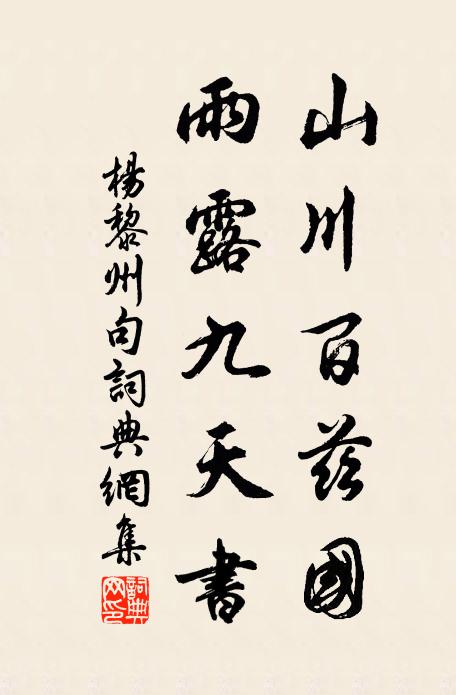 山川百茲國
雨露九天書
楊黎州句詞典網集
詞典网印